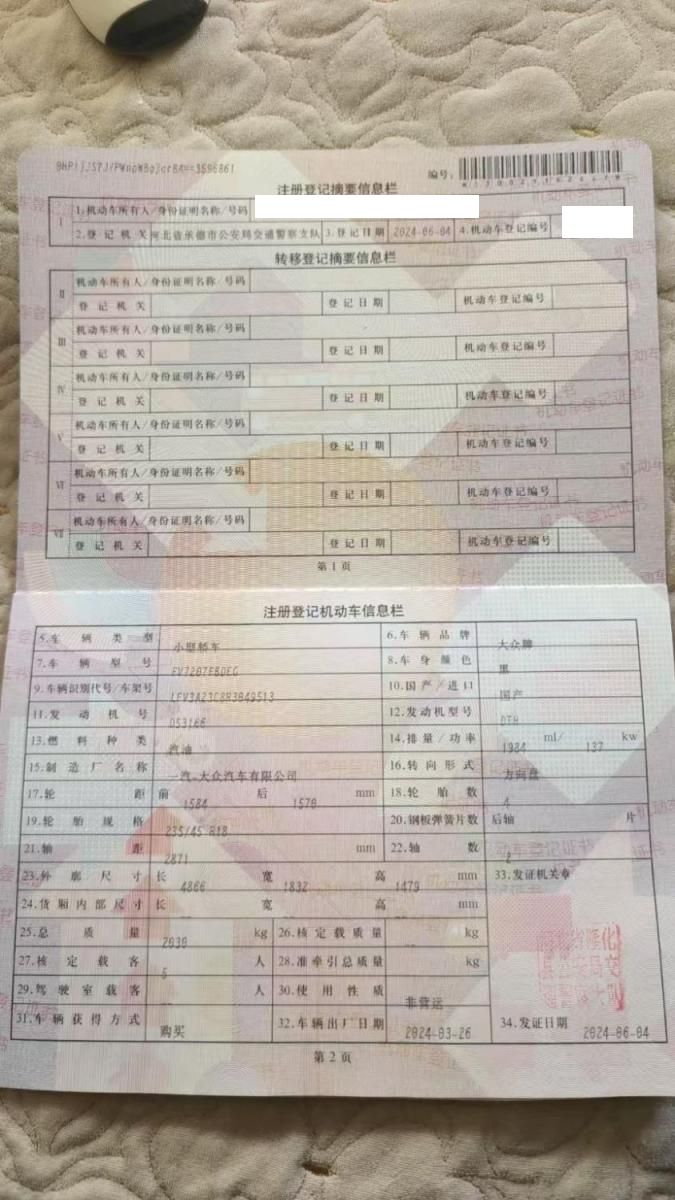 编号:
注册登记摘要信息栏
I 1.机动车所有人/身份证明名称/号码
2.登记机关 河北省承德市公安局交通警察支队 3.登记日期 2024-06-04 4.机动车登记编号
转移登记摘要信息栏
II 机动车所有人/身份证明名称/号码
登记机关 登记日期 机动车登记编号
III 机动车所有人/身份证明名称/号码
登记机关 登记日期 机动车登记编号
IV 机动车所有人/身份证明名称/号码
登记机关 登记日期 机动车登记编号
V 机动车所有人/身份证明名称/号码
登记机关 登记日期 机动车登记编号
VI 机动车所有人/身份证明名称/号码
登记机关 登记日期 机动车登记编号
VII 机动车所有人/身份证明名称/号码
登记机关 登记日期 机动车登记编号
第1页
注册登记机动车信息栏
5.车辆类型 小型轿车 6.车辆品牌 大众牌
7.车辆型号 FV7207FBDEG 8.车身颜色 黑
9.车辆识别代号/车架号 10.国产/进口 国产
11.发动机号 D53166 12.发动机型号 DTH
13.燃料种类 汽油 14.排量/功率 1984 ml/ 137 kw
15.制造厂名称 一汽-大众汽车有限公司 16.转向形式 方向盘
17.轮距 前 1584 后 1570 mm 18.轮胎数 4
19.轮胎规格 235/45 R18 20.钢板弹簧片数 后轴 片
21.轴距 2871 mm 22.轴数 2
23.外廓尺寸 长 4866 宽 1832 高 1479 mm 33.发证机关章
24.货厢内部尺寸 长 宽 高 mm
25.总质量 2030 kg 26.核定载质量 kg
27.核定载客 5 人 28.准牵引总质量 kg
29.驾驶室载客 人 30.使用性质 非营运
31.车辆获得方式 购买 32.车辆出厂日期 2024-03-26 34.发证日期 2024-06-04
第2页